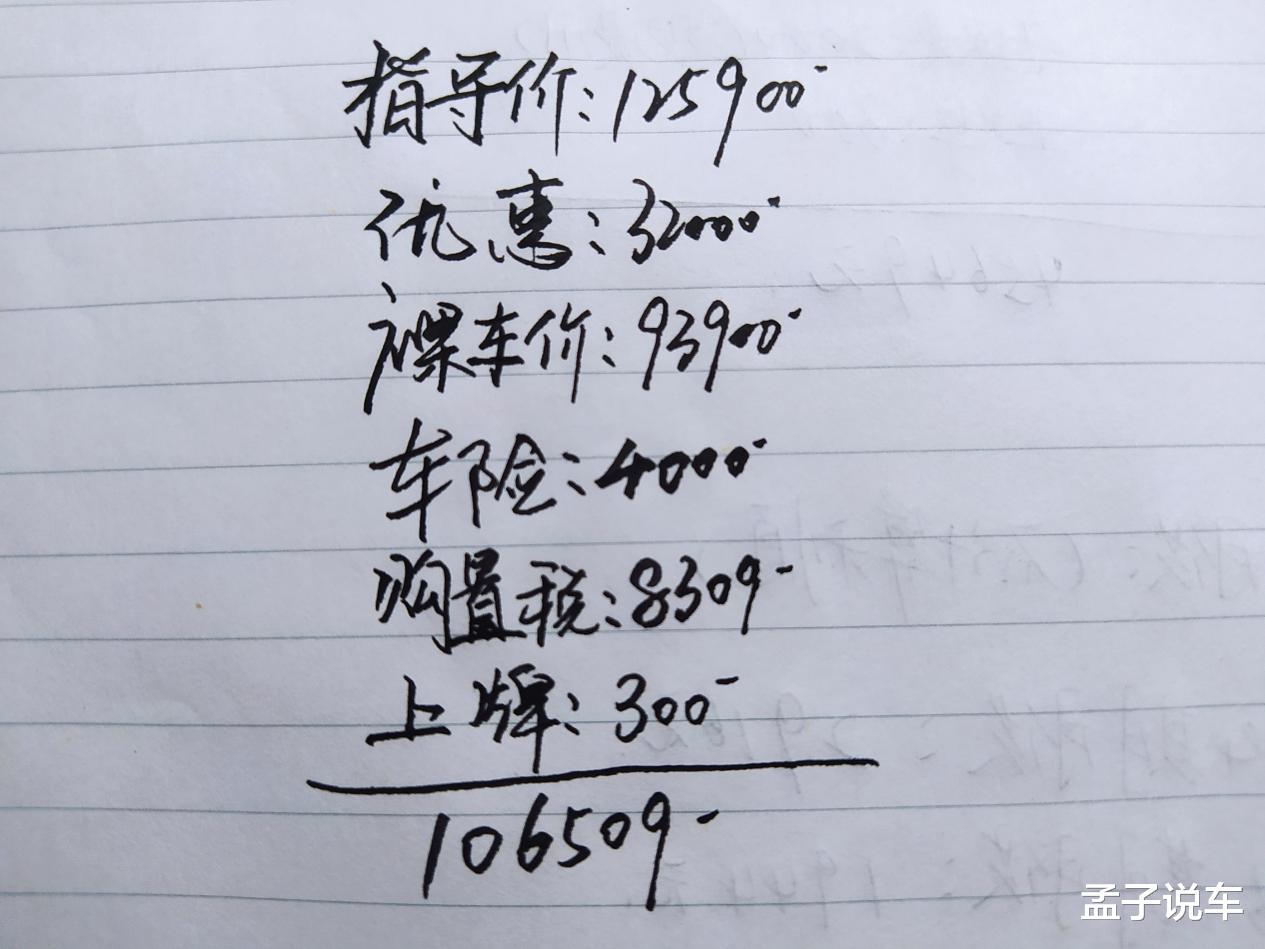 指导价:125900-
优惠:32000-
裸车价:93900-
车险:4000-
购置税:8309-
上牌:300-
106509-
孟子说车